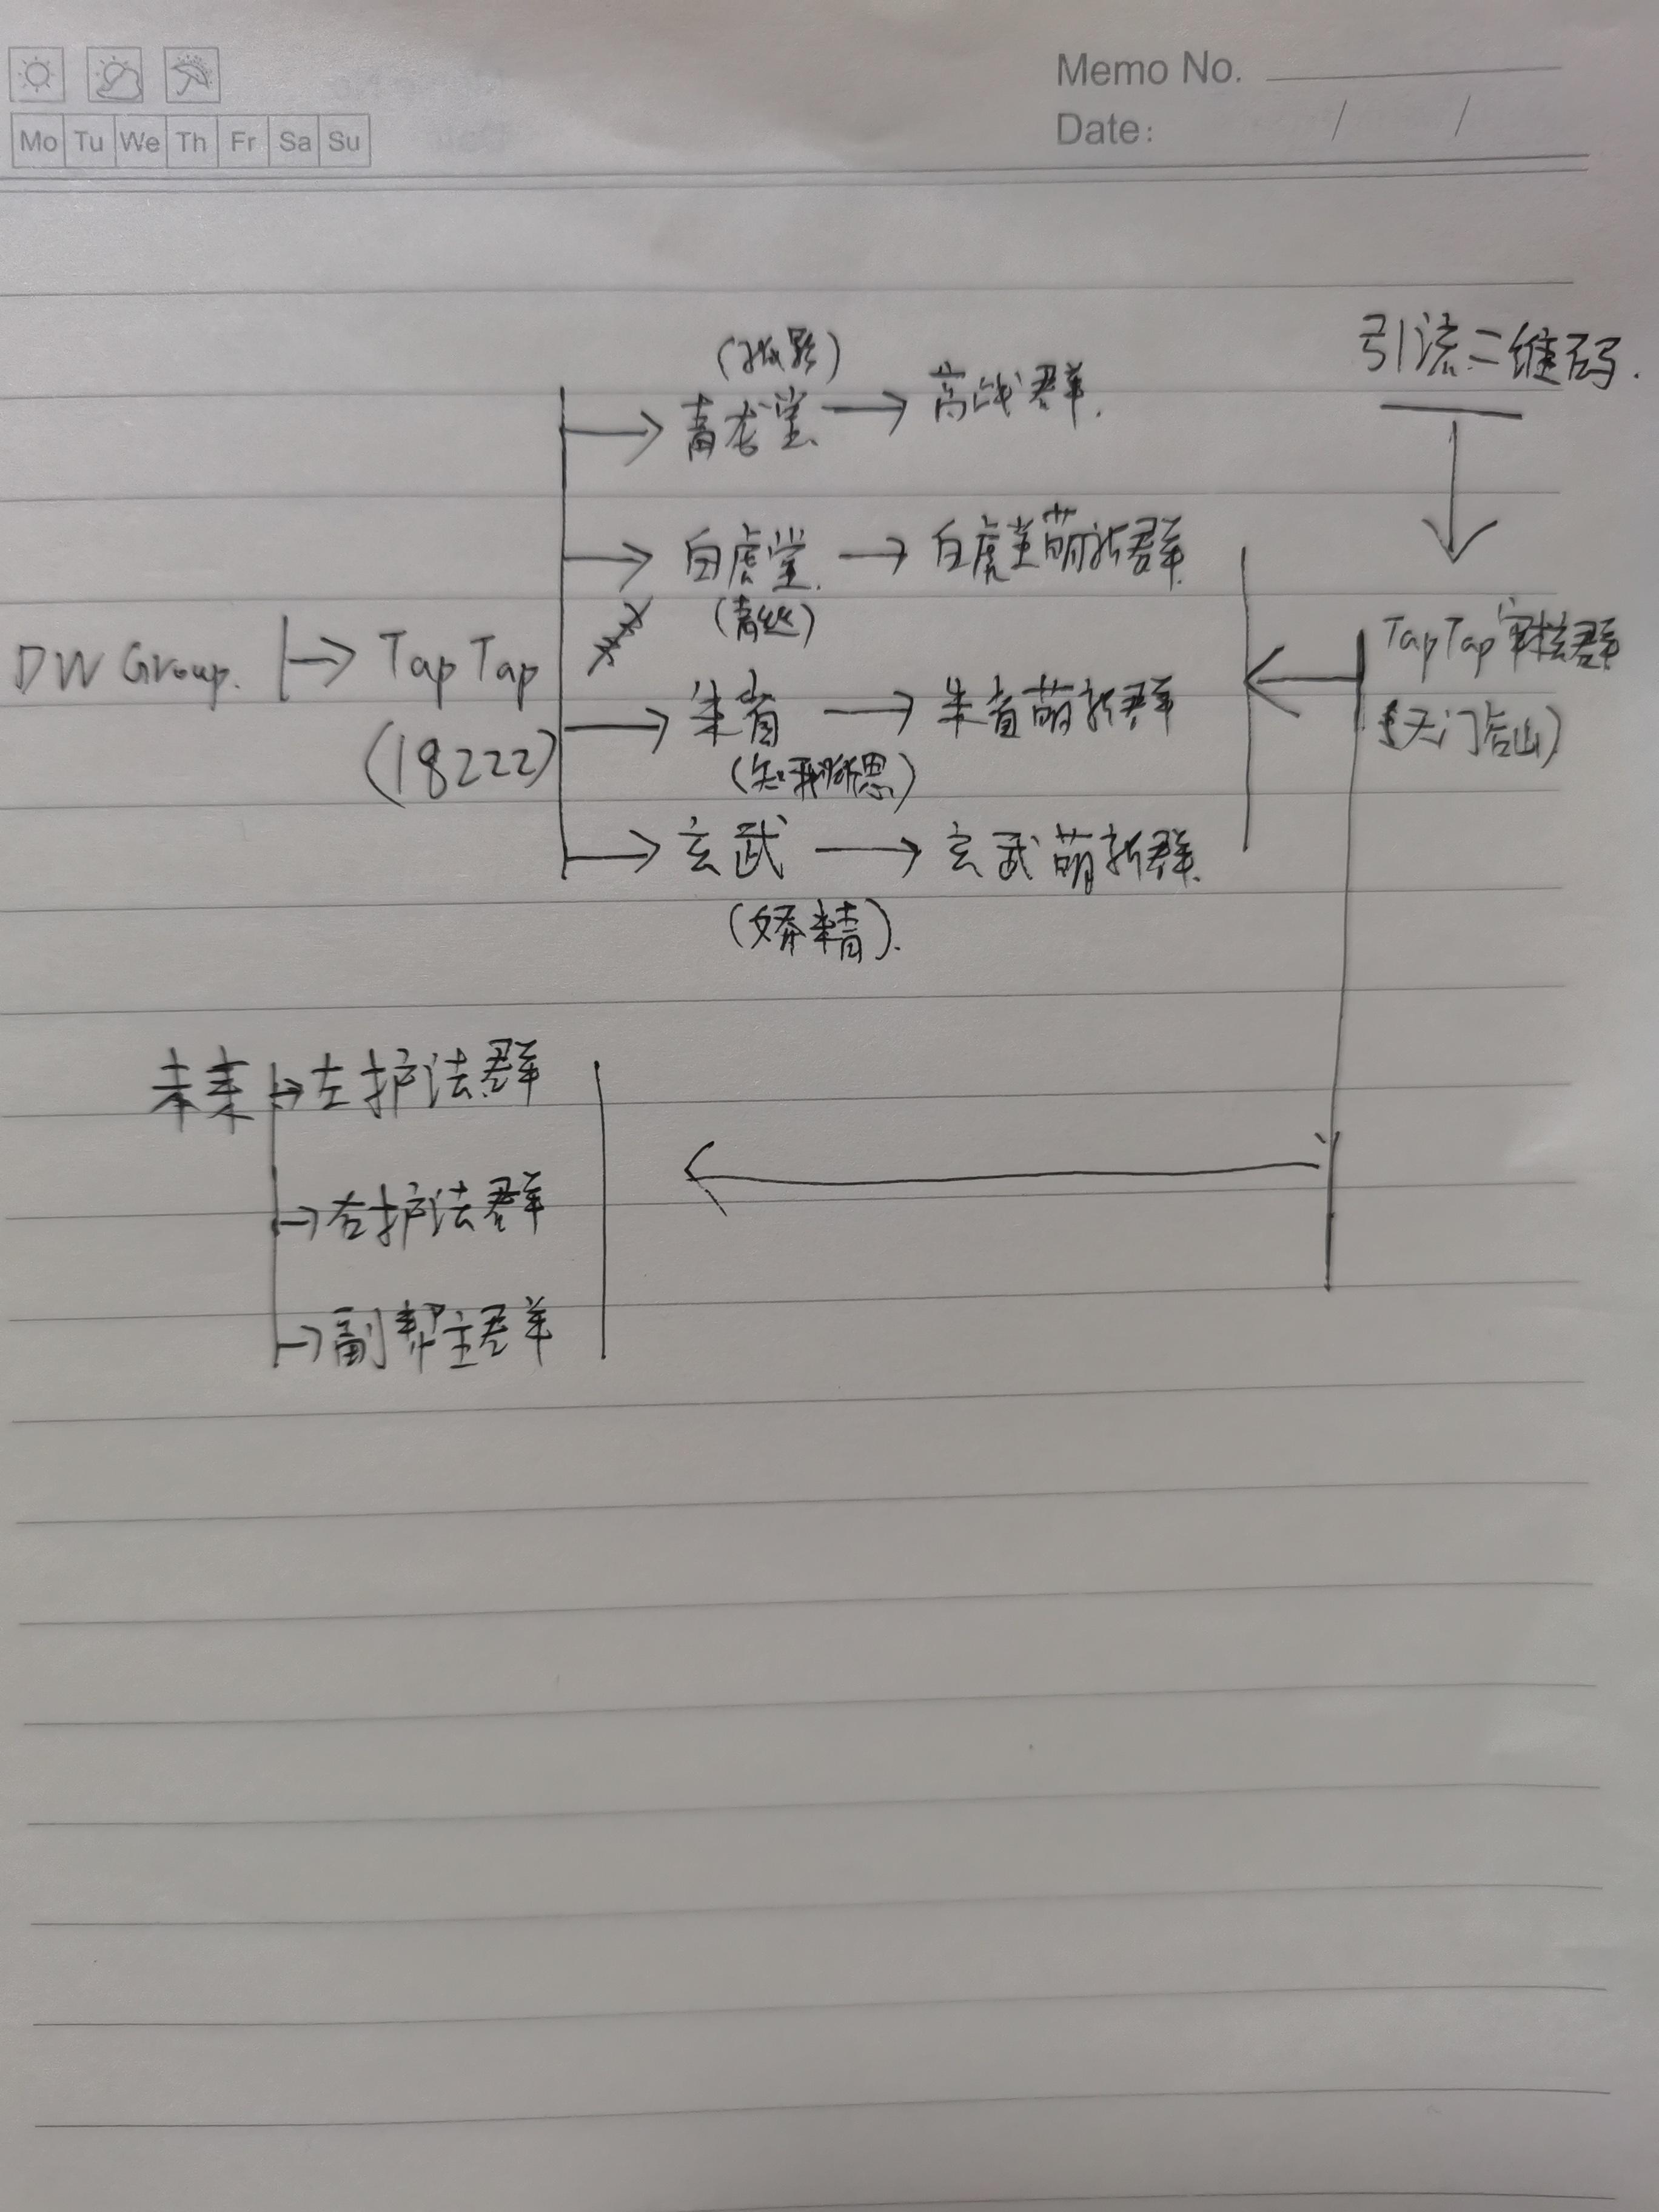 Memo No.
Mo Tu We Th Fr Sa Su
Date: / /
引流二维码.
(孤影)
青龙堂 → 高战群.
白虎堂. → 白虎堂萌新群.
(青丝)
DW Group. → Tap Tap
(18222)
TapTap审核群
(天门后山)
朱雀 → 朱雀萌新群
(知我所思)
玄武 → 玄武萌新群.
(娇精).
未来 → 左护法群
→ 右护法群
→ 副帮主群